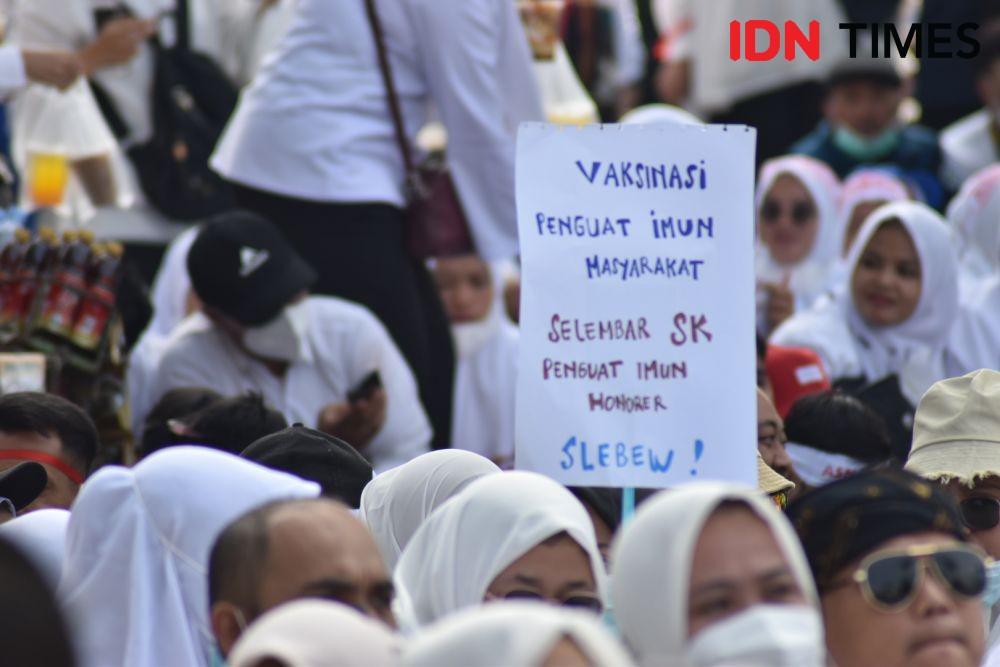 IDN TIMES
VAKSINASI
PENGUAT IMUN
MASYARAKAT
SELEMBAR SK
PENGUAT IMUN
HONORER
SLEBEW !